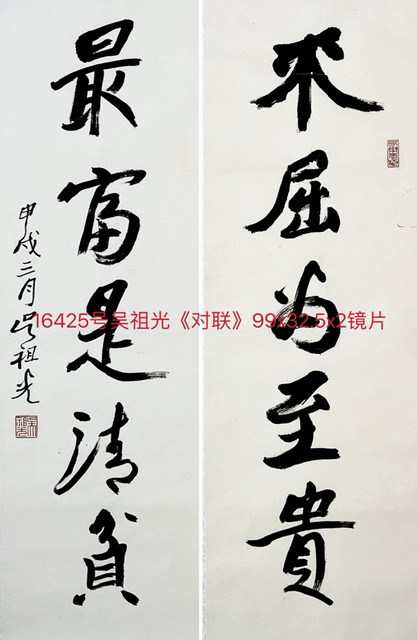 不屈为至貴
最富是清貧
甲戌三月吴祖光
16425号吴祖光《对联》99x32.5x2镜片